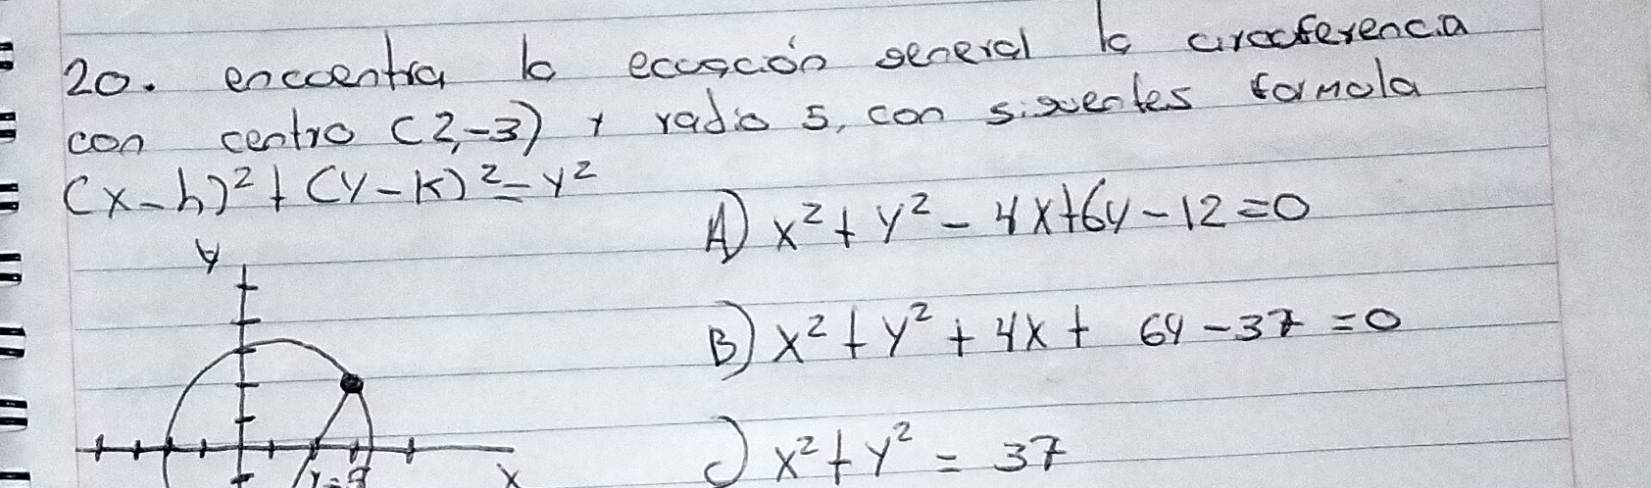 20. enccentra la ecuación general la circcferencia
con centro (2,-3) y radio 5, con siguentes formola
(x-h)² + (y-k)² = r²
A) x² + y² - 4x + 6y - 12 = 0
y
B) x² + y² + 4x + 6y - 37 = 0
C) x² + y² = 37
x